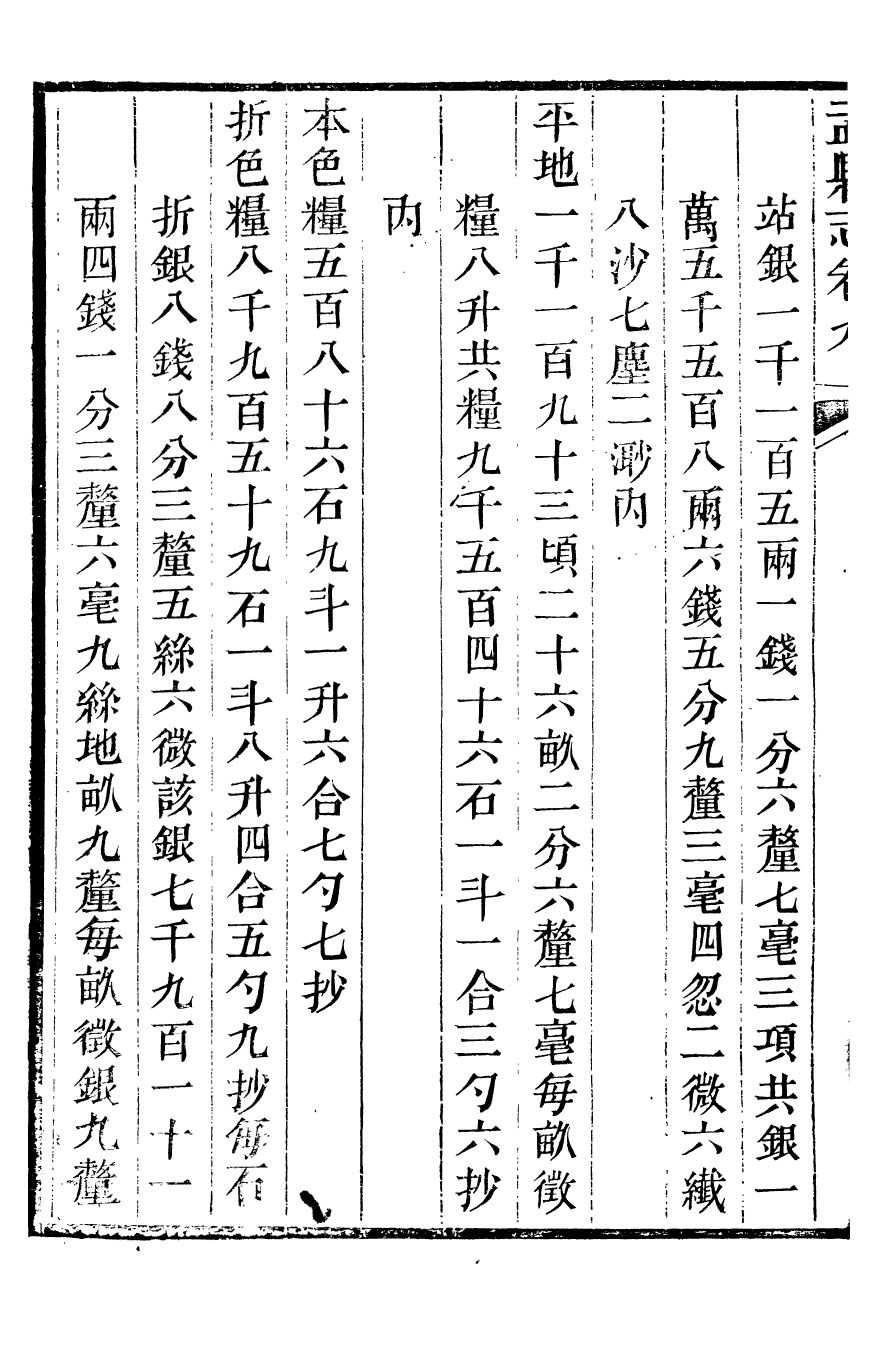 盂縣志卷九
站銀一千一百五兩一錢一分六釐七毫三項共銀一
萬五千五百八兩六錢五分九釐三毫四忽二微六纖
八沙七塵二渺內
平地一千一百九十三頃二十六畝二分六釐七毫每畝徵
糧八升共糧九千五百四十六石一斗一合三勺六抄
內
本色糧五百八十六石九斗一升六合七勺七抄
折色糧八千九百五十九石一斗八升四合五勺九抄每石
折銀八錢八分三釐五絲六微該銀七千九百一十一
兩四錢一分三釐六毫九絲地畝九釐每畝徵銀九釐